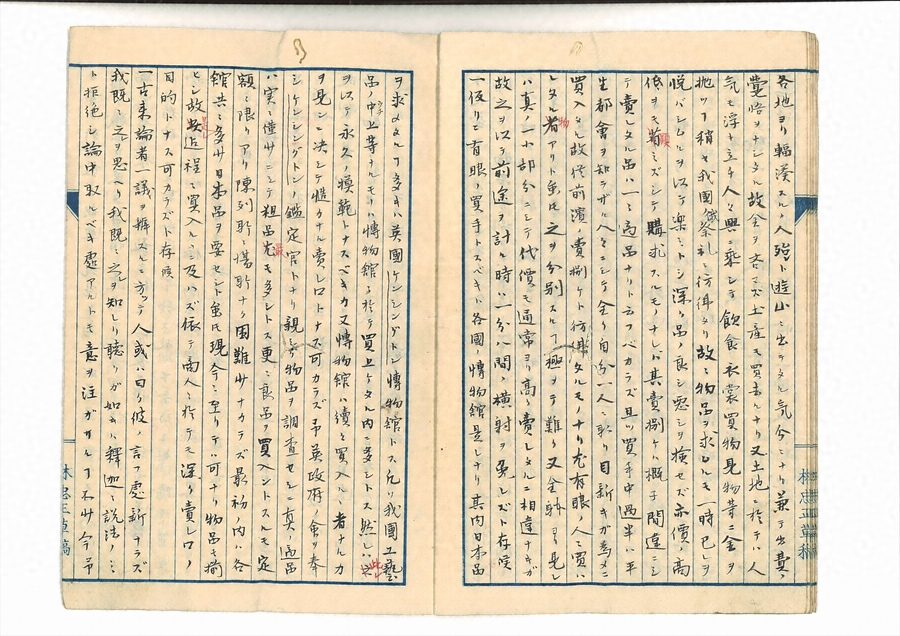 各地ヨリ輻湊スルノ人殆ド遊山ニ出テタル気分ニナリ兼テ出費ノ
覚悟ヲナシタル故会ヲ吝マズ土産モ買去ルナリ又土地ニ於テハ人
気モ浮キ立チ人々興ニ乗シテ飲食衣裳買物見物等ニ金ヲ
抛ツ稍キ我國ノ祭礼ニ彷彿タリ故ニ物品ヲ求ムルモ一時已レヲ
悦バシムルヲ以テ楽ミトシ深ク品ノ良シ悪シヲ検セズ亦價ノ高
低ヲモ顧ミズシテ購求スルモノナレバ其賣捌ケハ概子間違ニシ
テ賣レタル品ハ一ニ高品ナリト云フベカラズ且ツ買手中過半ハ平
生都會ヲ知ラザル人々ニシテ全ク自分一人ニ取リ目新シキガ為メニ
買入タル故従前濱ノ賣捌ケト彷彿タルモノナリ尤有眼ノ人ニ買ハ
レタル物アリト虽氏之ヲ分別スルヿ極メテ難ク又全躰ヨリ見レ
ハ真ノ一小部分ニシテ代價モ通常ヨリ高ク賣レタルニ相違ナキガ
故之ヲ以テ前途ヲ計ル時ハ一分八間ノ横射ヲ免レズト存候
一仮リニ有眼ノ買手トスベキハ各國ノ博物館是レナリ其内日本品
ヲ求メタルヿ多キハ英國ケンシングトン博物館トス凡ソ我國工藝
品ノ中上等ナルモノハ博物館ニ於テ買上ケタル内ニ多シトス然レハ之
ヲ以テ永久ノ模範トナスベキカ又博物館ハ續々買入ルヽ者ナルカ
ヲ見ルニ決シテ慥カナル賣レ口トナス可カラズ吊英政府ノ命ヲ奉
シケンシングトンノ鑑定官トナリ親シク物品ヲ調査セシニ真ノ良品
ハ実ニ僅少ニシテ粗品尤モ多シトス更ニ良品ヲ買入ントスルモ定
額ニ限リアリ陳列スルニ場所ナク困難少ナカラズ最初ノ内ハ各
館共ニ多少日本品ヲ要セシト虽氏現今ニ至リテハ可ナリ物品モ揃
ヒシ故是迄程ニ買入ルヽニ及ハズ依テ商人ニ於テモ深ク賣レ口ノ
目的トナス可カラズト存候
一古来論者一議ヲ排スルニ方ツテ人或ハ曰ク彼ノ言フ處新ナラズ
我既ニ之ヲ思ヘリ我既ニ之レヲ知レリ聴クガ如キハ釋迦ニ説法ノミ
ト拒絶シ論中取ルベキ處アルトモ意ヲ注ガサルヿ不少今吊
林忠正草稿
林忠正草稿